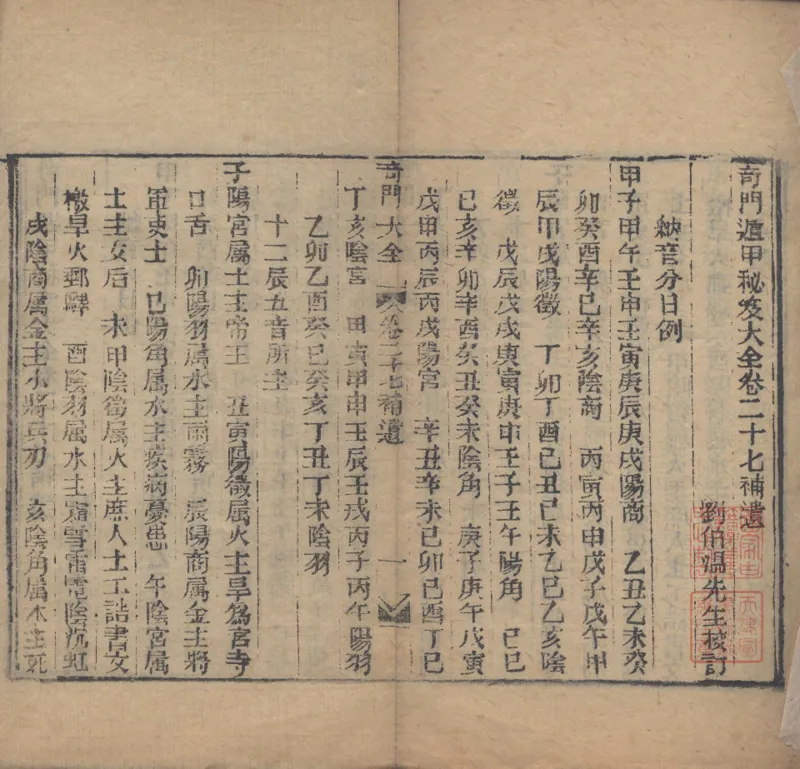 奇門遁甲秘笈大全卷二十七補遺
劉伯溫先生校訂
納音分日例
甲子甲午壬申壬寅庚辰庚戌陽商 乙丑乙未癸
卯癸酉辛巳辛亥陰商 丙寅丙申戊子戊午甲
辰甲戌陽徵 丁卯丁酉己丑己未乙巳乙亥陰
徵 戊辰戊戌庚寅庚申壬子壬午陽角 己巳
己亥辛卯辛酉癸丑癸未陰角 庚子庚午戊寅
戊甲丙辰丙戌陽宮 辛丑辛未己卯己酉丁巳
奇門大全 卷二十七補遺 一
丁亥陰宮 甲寅甲申壬辰壬戌丙子丙午陽羽
乙卯乙酉癸巳癸亥丁丑丁未陰羽
十二辰五音所主
子陽宮属土主帝王 丑寅陽徵属火主旱為宮寺
口舌 卯陽羽属水主雨霧 辰陽商属金主將
軍吏士 巳陽角属水主疾病憂患 午陰宮属
土主女后 未甲陰徵属火主庶人土工詔書文
檄旱火郵驛 酉陰羽属水主霜雪雷電陰沉虹
戌陰商属金主小將兵刃 亥陰角属木主死